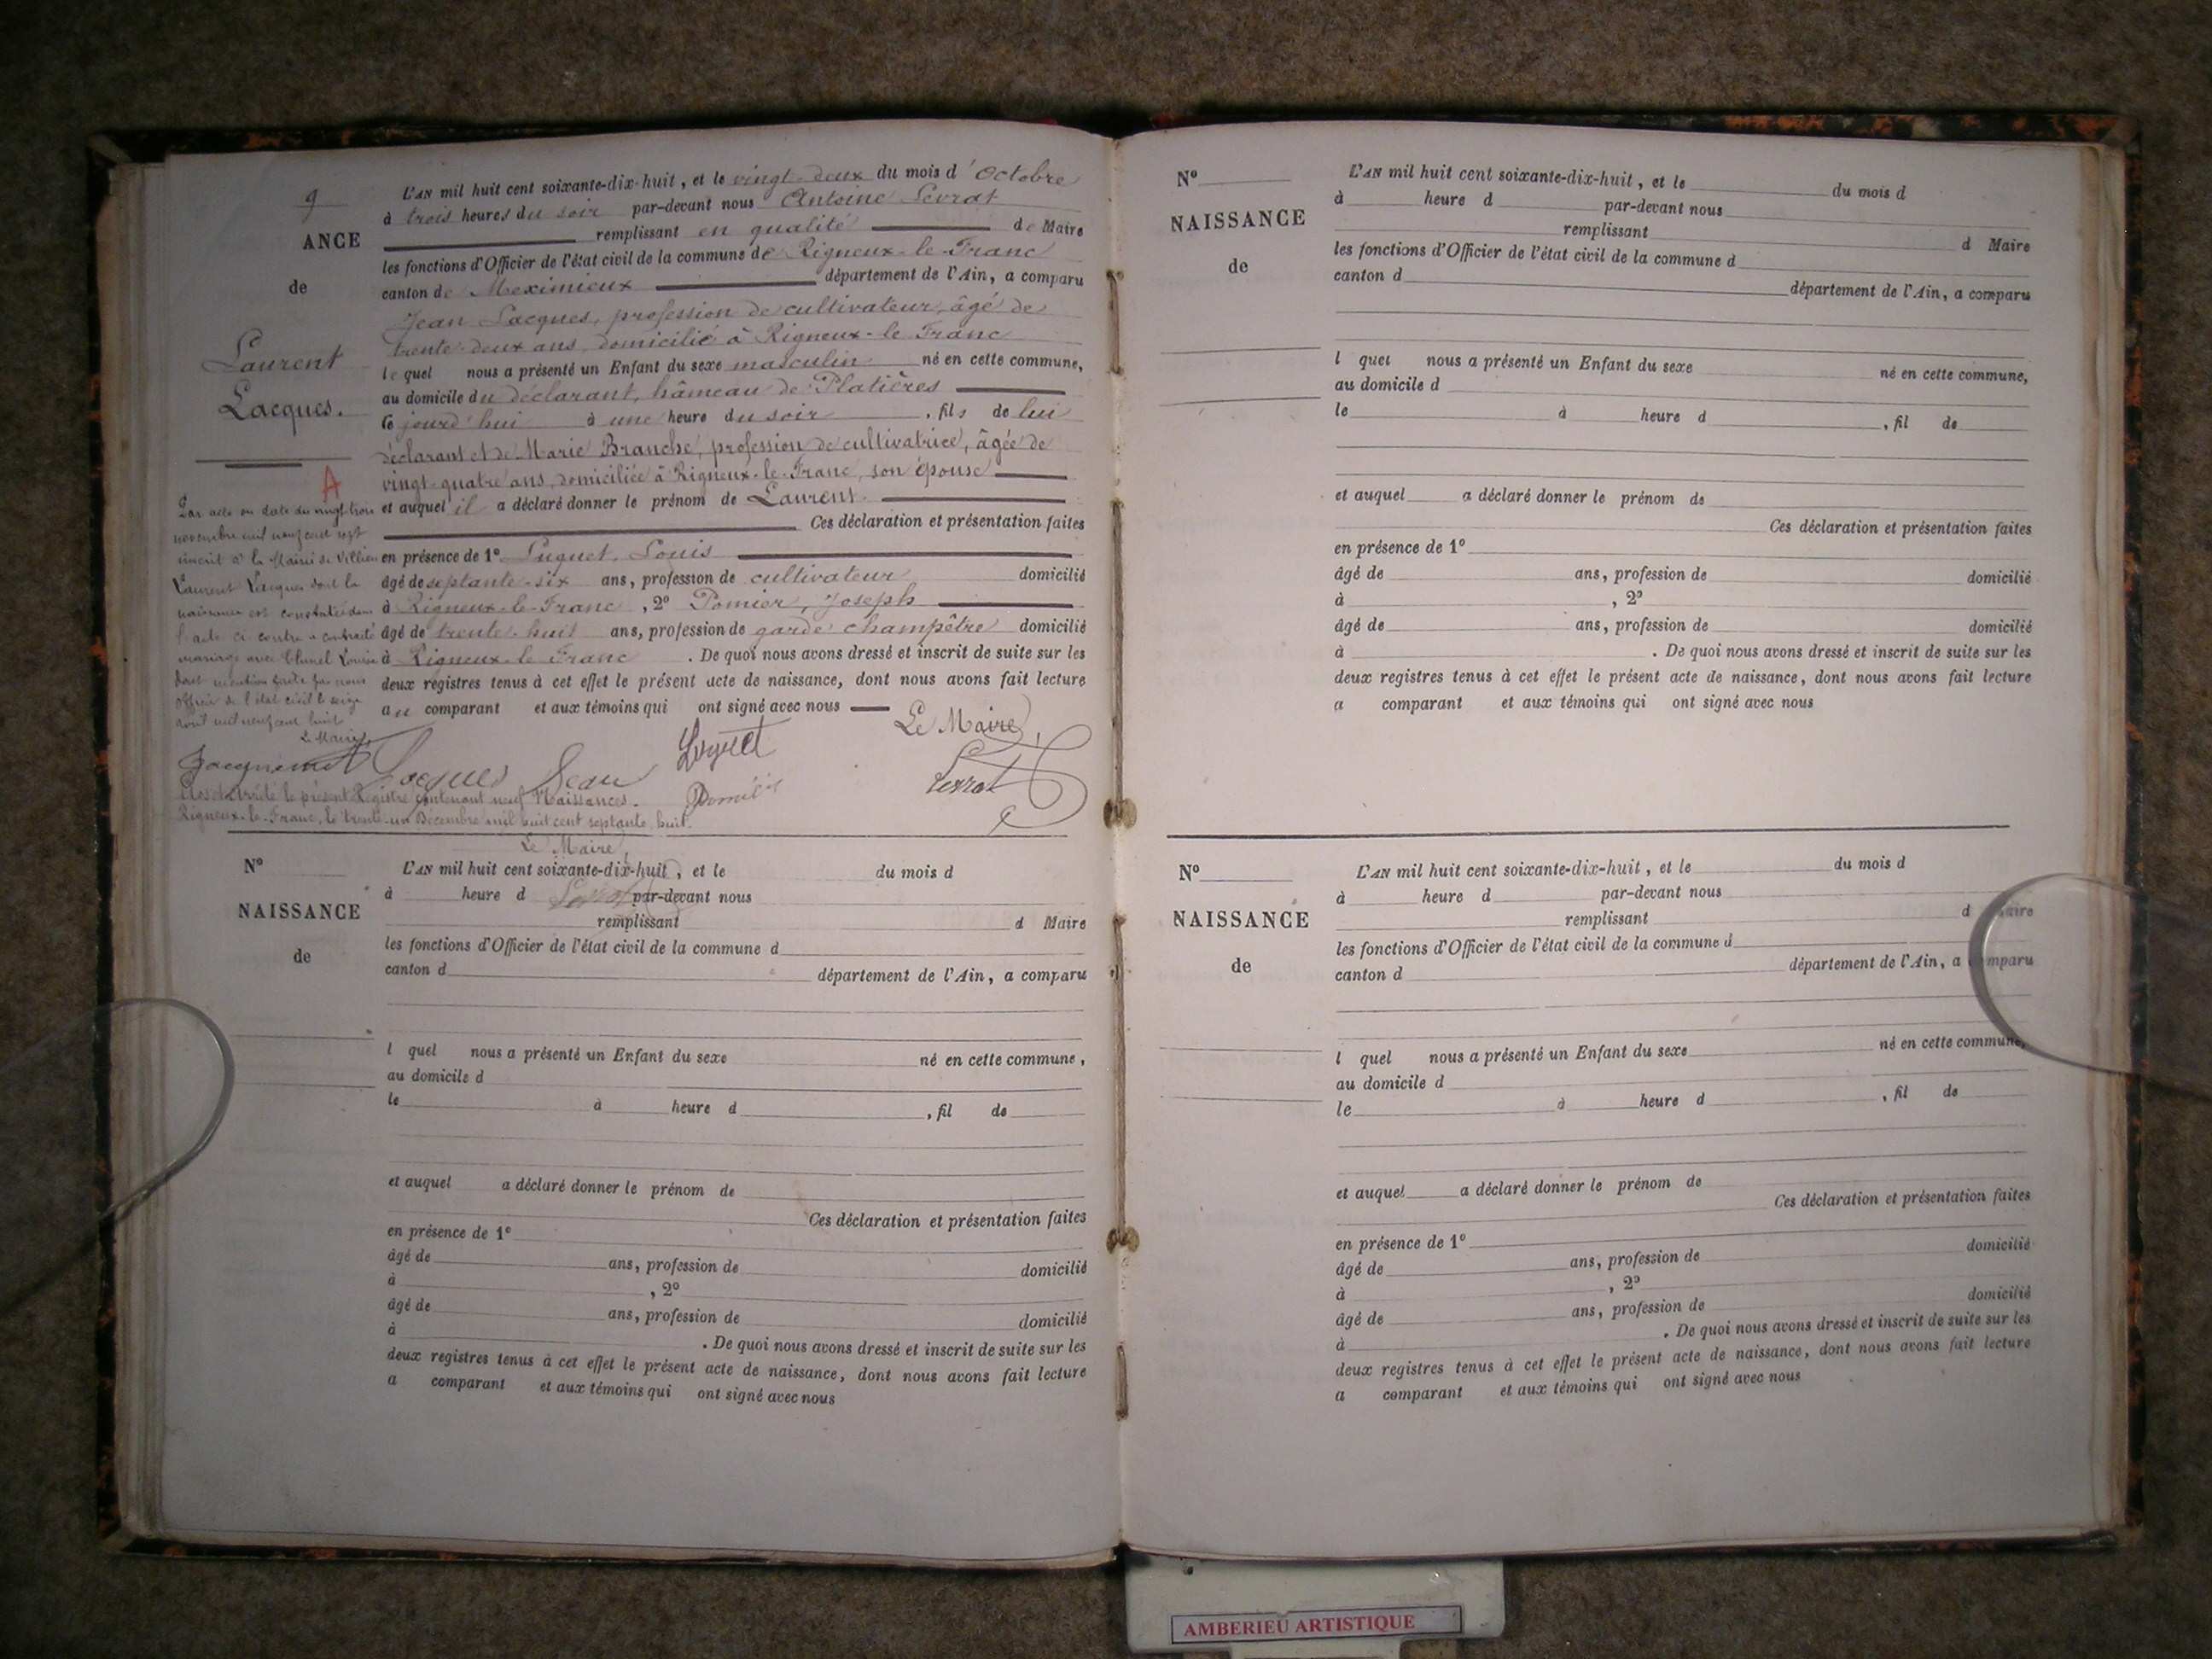 9
ANCE
de
Laurent
Lacques.
L'AN mil huit cent soixante-dix-huit, et le vingt-deux du mois d'Octobre
à trois heures du soir par-devant nous Antoine Levrat
remplissant en qualité de Maire
les fonctions d'Officier de l'état civil de la commune de Rigneux-le-Franc
canton de Meximieux département de l'Ain, a comparu
Jean Lacques, profession de cultivateur, âgé de
trente-deux ans, domicilié à Rigneux-le-Franc
lequel nous a présenté un Enfant du sexe masculin né en cette commune,
au domicile du déclarant, hâmeau de Platières
ce jourd'hui à une heure du soir, fils de lui
déclarant et de Marie Branche, profession de cultivatrice, âgée de
vingt-quatre ans, domiciliée à Rigneux-le-Franc, son épouse
et auquel il a déclaré donner le prénom de Laurent.
Ces déclaration et présentation faites
en présence de 1° Luguet, Louis
âgé de septante-six ans, profession de cultivateur domicilié
à Rigneux-le-Franc, 2° Pomier, Joseph
âgé de trente-huit ans, profession de garde champêtre domicilié
à Rigneux-le-Franc. De quoi nous avons dressé et inscrit de suite sur les
deux registres tenus à cet effet le présent acte de naissance, dont nous avons fait lecture
au comparant et aux témoins qui ont signé avec nous
Le Maire,
A
Par acte en date du vingt-trois
novembre mil neuf cent sept
inscrit à la Mairie de Villieu
Laurent Lacques dont la
naissance est constatée dans
l'acte ci contre a contracté
mariage avec Louise
dont mention faite par nous
officier de l'état civil le seize
avril mil neuf cent huit
Le Maire,
Jacquemet Lacques Jean Luguet Pomier Levrat
Clos et arrêté le présent Registre contenant neuf Naissances.
Rigneux-le-Franc, le trente-un Décembre mil huit cent septante-huit.
Le Maire,
Levrat
N°
NAISSANCE
de
L'AN mil huit cent soixante-dix-huit, et le du mois d
à heure d par-devant nous
remplissant d Maire
les fonctions d'Officier de l'état civil de la commune d
canton d département de l'Ain, a comparu
l quel nous a présenté un Enfant du sexe né en cette commune,
au domicile d
le à heure d , fil de
et auquel a déclaré donner le prénom de
Ces déclaration et présentation faites
en présence de 1°
âgé de ans, profession de domicilié
à , 2°
âgé de ans, profession de domicilié
à . De quoi nous avons dressé et inscrit de suite sur les
deux registres tenus à cet effet le présent acte de naissance, dont nous avons fait lecture
a comparant et aux témoins qui ont signé avec nous
N°
NAISSANCE
de
L'AN mil huit cent soixante-dix-huit, et le du mois d
à heure d par-devant nous
remplissant d Maire
les fonctions d'Officier de l'état civil de la commune d
canton d département de l'Ain, a comparu
l quel nous a présenté un Enfant du sexe né en cette commune,
au domicile d
le à heure d , fil de
et auquel a déclaré donner le prénom de
Ces déclaration et présentation faites
en présence de 1°
âgé de ans, profession de domicilié
à , 2°
âgé de ans, profession de domicilié
à . De quoi nous avons dressé et inscrit de suite sur les
deux registres tenus à cet effet le présent acte de naissance, dont nous avons fait lecture
a comparant et aux témoins qui ont signé avec nous
N°
NAISSANCE
de
L'AN mil huit cent soixante-dix-huit, et le du mois d
à heure d par-devant nous
remplissant d Maire
les fonctions d'Officier de l'état civil de la commune d
canton d département de l'Ain, a comparu
l quel nous a présenté un Enfant du sexe né en cette commune,
au domicile d
le à heure d , fil de
et auquel a déclaré donner le prénom de
Ces déclaration et présentation faites
en présence de 1°
âgé de ans, profession de domicilié
à , 2°
âgé de ans, profession de domicilié
à . De quoi nous avons dressé et inscrit de suite sur les
deux registres tenus à cet effet le présent acte de naissance, dont nous avons fait lecture
a comparant et aux témoins qui ont signé avec nous
AMBERIEU ARTISTIQUE